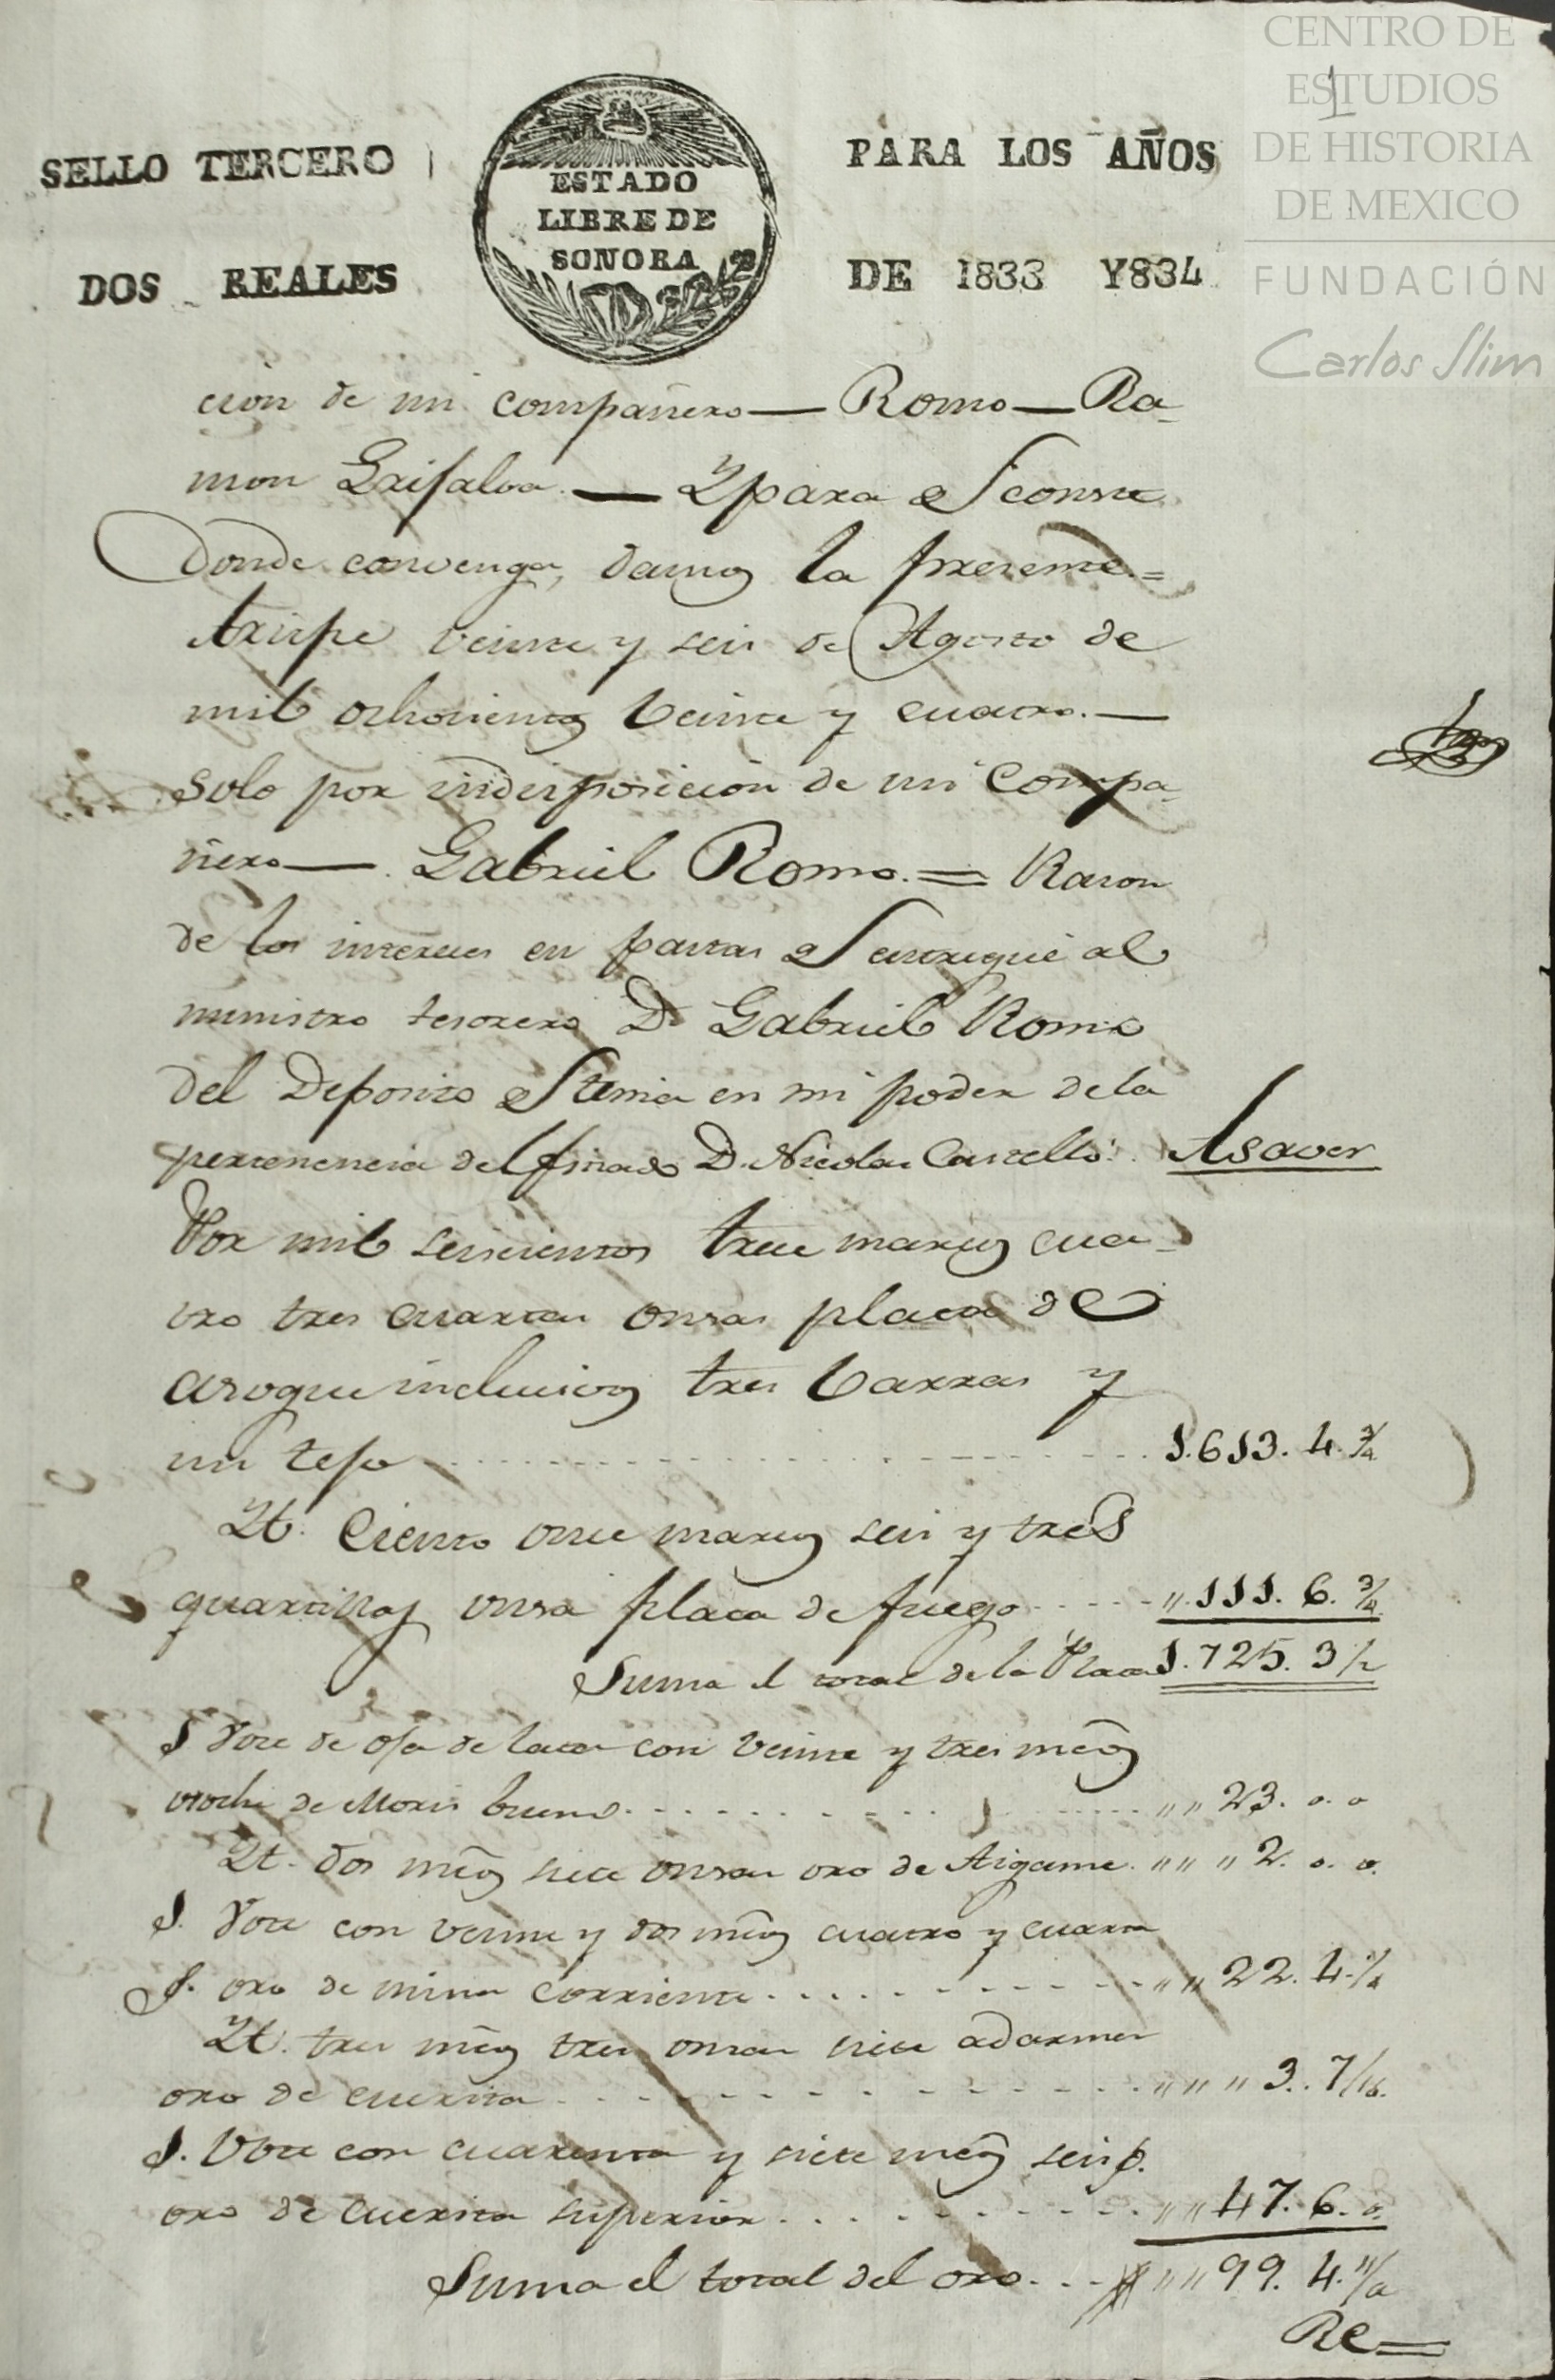 CENTRO DE
ESTUDIOS
DE HISTORIA
DE MEXICO
FUNDACIÓN
Carlos Slim
1
SELLO TERCERO
PARA LOS AÑOS
ESTADO
LIBRE DE
SONORA
DOS REALES
DE 1833 Y834
cion de mi compañero — Romo — Ra-
mon Grijalva. — Y para q.e conste
donde convenga, damos la presente. =
Arispe veinte y seis de Agosto de
mil ochocientos veinte y cuatro. —
Solo por indisposicion de mi compa-
ñero —. Gabriel Romo. = Rason
de los intereses en pastas q.e entregué al
ministro tesorero D. Gabriel Romo
del Deposito q.e tenia en mi poder de la
pertenencia del finado D. Nicolas Castelló: Asaver
Por mil seiscientos trece marcos cua-
tro tres cuartas onsas plata de
asogue inclusives tres barras y
un tejo 1.613. 4. 3/4
Yt. Ciento once marcos seis y tres
quartillas onsa plata de fuego ,, 111. 6. 3/4
Suma el total de la Plata 1.725. 3 1/2
1 Vote de oja de lata con veinte y tres mcos
de Moris bueno. ,, ,, 23. o. o
Yt. dos mcos siete onsas oro de Aigame. ,, ,, ,, 2. o. o.
1. Vote con veinte y dos mcos cuatro y cuarta
oro de mina corriente. ,, ,, 22. 4. 1/4
Yt. tres mcos tres onsas siete adarmes
oro de cuerita ,, ,, ,, 3.. 7/16.
1. Vote con cuarenta y siete mcos seis
oro de cuerita superior. ,, ,, 47. 6. o.
Suma el total del oro. ,, ,, 99. 4.
Re=